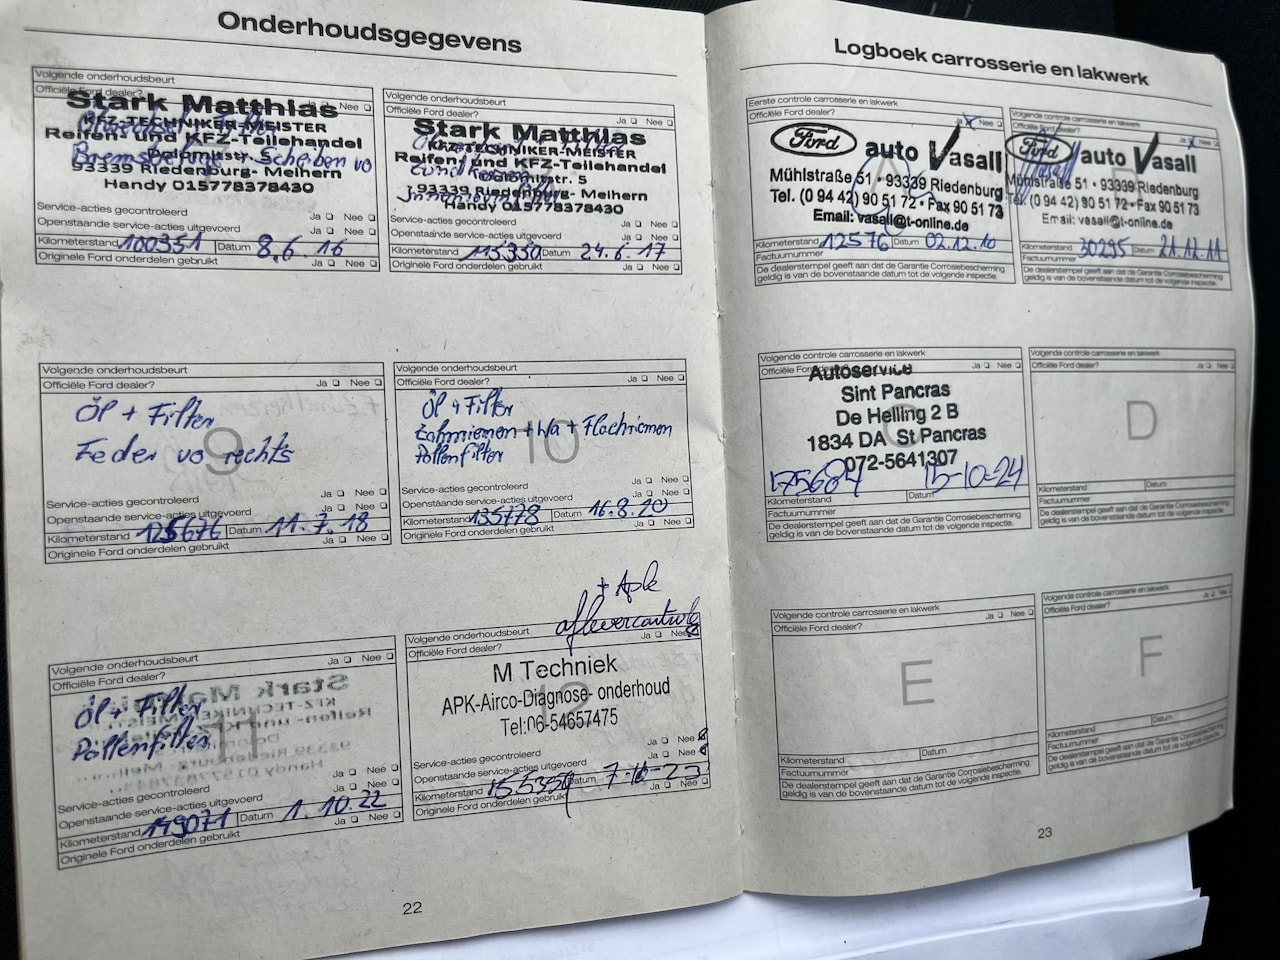 Onderhoudsgegevens
Volgende onderhoudsbeurt
Officiële Ford dealer?
Nee
Stark Matthias
KFZ-TECHNIKER-MEISTER
Reifen- und KFZ-Teilehandel
Bremsbeläge Scheiben vo
93339 Riedenburg- Meihern
Handy 015778378430
Service-acties gecontroleerd Ja Nee
Openstaande service-acties uitgevoerd Ja Nee
Kilometerstand 100351 Datum 8.6.16
Originele Ford onderdelen gebruikt Ja Nee
Volgende onderhoudsbeurt
Officiële Ford dealer? Ja Nee
Stark Matthias
KFZ-TECHNIKER-MEISTER
Reifen- und KFZ-Teilehandel
str. 5
93339 Riedenburg- Meihern
Handy 015778378430
Service-acties gecontroleerd Ja Nee
Openstaande service-acties uitgevoerd Ja Nee
Kilometerstand 115330 Datum 24.6.17
Originele Ford onderdelen gebruikt Ja Nee
Volgende onderhoudsbeurt
Officiële Ford dealer? Ja Nee
9
Öl + Filter
Feder vo rechts
Service-acties gecontroleerd Ja Nee
Openstaande service-acties uitgevoerd Ja Nee
Kilometerstand 125676 Datum 11.7.18
Originele Ford onderdelen gebruikt Ja Nee
Volgende onderhoudsbeurt
Officiële Ford dealer? Ja Nee
10
Öl + Filter
Zahnriemen + Wa + Flachriemen
Pollenfilter
Service-acties gecontroleerd Ja Nee
Openstaande service-acties uitgevoerd Ja Nee
Kilometerstand 135778 Datum 16.8.20
Originele Ford onderdelen gebruikt Ja Nee
Volgende onderhoudsbeurt
Officiële Ford dealer? Ja Nee
11
Öl + Filter
Pollenfilter
Service-acties gecontroleerd Ja Nee
Openstaande service-acties uitgevoerd Ja Nee
Kilometerstand 149071 Datum 1.10.22
Originele Ford onderdelen gebruikt Ja Nee
+ Apk
aflevercontrole
Volgende onderhoudsbeurt
Officiële Ford dealer? Ja Nee
12
M Techniek
APK-Airco-Diagnose- onderhoud
Tel:06-54657475
Service-acties gecontroleerd Ja Nee
Openstaande service-acties uitgevoerd Ja Nee
Kilometerstand 155359 Datum 7-10-23
Originele Ford onderdelen gebruikt Ja Nee
22
Logboek carrosserie en lakwerk
Eerste controle carrosserie en lakwerk
Officiële Ford dealer? Ja Nee
Ford auto Vasall
Mühlstraße 51 • 93339 Riedenburg
Tel. (0 94 42) 90 51 72 • Fax 90 51 73
Email: vasall@t-online.de
Kilometerstand 12576 Datum 02.12.10
Factuurnummer
De dealerstempel geeft aan dat de Garantie Corrosiebescherming
geldig is van de bovenstaande datum tot de volgende inspectie.
Volgende controle carrosserie en lakwerk
Officiële Ford dealer? Ja Nee
Ford auto Vasall
Mühlstraße 51 • 93339 Riedenburg
Tel. (0 94 42) 90 51 72 • Fax 90 51 73
Email: vasall@t-online.de
Kilometerstand 30295 Datum 21.12.11
Factuurnummer
De dealerstempel geeft aan dat de Garantie Corrosiebescherming
geldig is van de bovenstaande datum tot de volgende inspectie.
Volgende controle carrosserie en lakwerk
Officiële Ford dealer?
Autoservice
Sint Pancras
De Helling 2 B
1834 DA St Pancras
072-5641307
175684 15-10-24
Kilometerstand Datum
Factuurnummer
De dealerstempel geeft aan dat de Garantie Corrosiebescherming
geldig is van de bovenstaande datum tot de volgende inspectie.
Volgende controle carrosserie en lakwerk
Officiële Ford dealer? Ja Nee
D
Kilometerstand Datum
Factuurnummer
De dealerstempel geeft aan dat de Garantie Corrosiebescherming
geldig is van de bovenstaande datum tot de volgende inspectie.
Volgende controle carrosserie en lakwerk
Officiële Ford dealer? Ja Nee
E
Kilometerstand Datum
Factuurnummer
De dealerstempel geeft aan dat de Garantie Corrosiebescherming
geldig is van de bovenstaande datum tot de volgende inspectie.
Volgende controle carrosserie en lakwerk
Officiële Ford dealer? Ja Nee
F
Kilometerstand Datum
Factuurnummer
De dealerstempel geeft aan dat de Garantie Corrosiebescherming
geldig is van de bovenstaande datum tot de volgende inspectie.
23